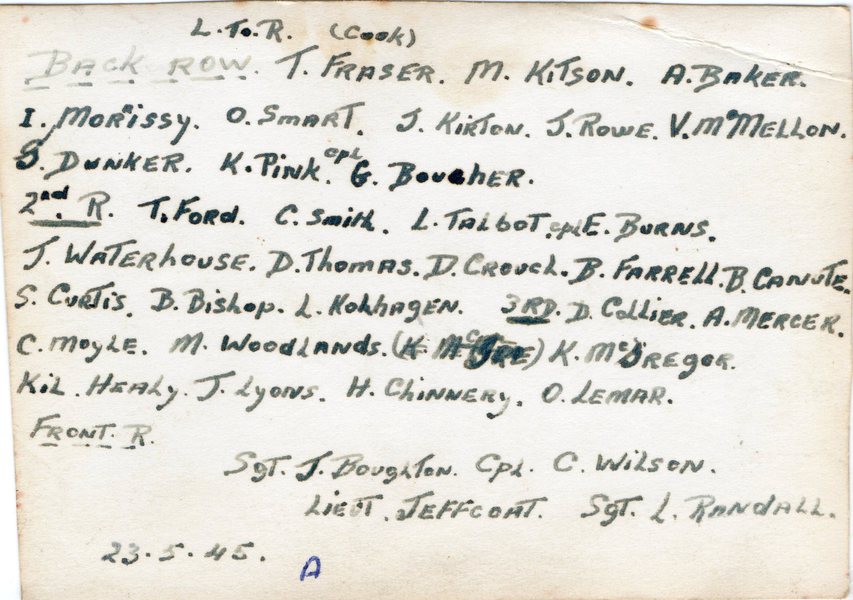 L. To. R. (Cook)
BACK ROW. T. FRASER. M. KITSON. A. BAKER.
I. MORRISSY. O. SMART. J. KIRTON. J. ROWE. V. McMELLON.
S. DUNKER. K. PINK. Cpl G. BOUCHER.
2nd. R. T. FORD. C. SMITH. L. TALBOT. Cpl E. BURNS.
J. WATERHOUSE. D. THOMAS. D. CROUCH. B. FARRELL. B. CANUTE.
S. CURTIS. B. BISHOP. L. KOHHAGEN. 3RD. D. COLLIER. A. MERCER.
C. MOYLE. M. WOODLANDS. (K. ) K. McGREGOR.
KIL. HEALY. J. LYONS. H. CHINNERY. O. LEMAR.
FRONT. R.
Sgt. J. BOUGHTON. Cpl. C. WILSON.
LIEUT. JEFFCOAT. Sgt. L. RANDALL.
23.5.45. A